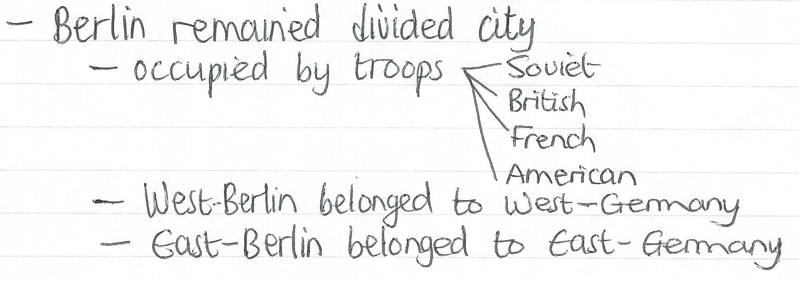 – Berlin remained divided city
– occupied by troops Soviet
British
French
American
– West-Berlin belonged to West-Germany
– East-Berlin belonged to East-Germany